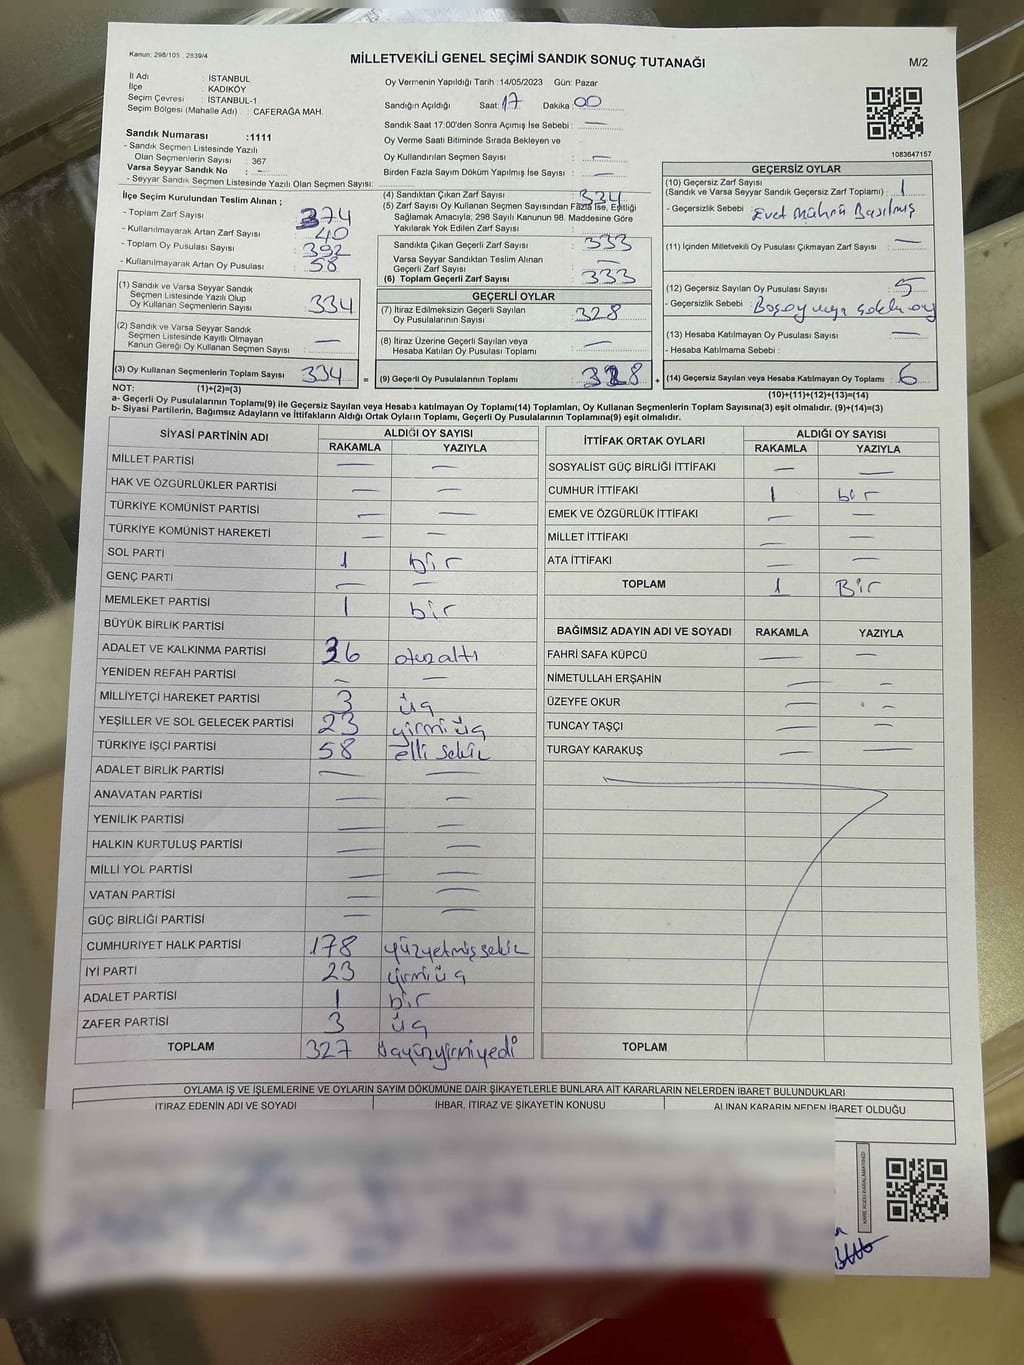 Kanun: 298/105 , 2839/4
MİLLETVEKİLİ GENEL SEÇİMİ SANDIK SONUÇ TUTANAĞI
M/2
İl Adı : İSTANBUL
İlçe : KADIKÖY
Seçim Çevresi : İSTANBUL-1
Seçim Bölgesi (Mahalle Adı) : CAFERAĞA MAH.
Sandık Numarası :1111
- Sandık Seçmen Listesinde Yazılı
Olan Seçmenlerin Sayısı : 367
Varsa Seyyar Sandık No : —
- Seyyar Sandık Seçmen Listesinde Yazılı Olan Seçmen Sayısı:
İlçe Seçim Kurulundan Teslim Alınan ;
- Toplam Zarf Sayısı : 374
- Kullanılmayarak Artan Zarf Sayısı : 40
- Toplam Oy Pusulası Sayısı : 392
- Kullanılmayarak Artan Oy Pusulası : 58
(1) Sandık ve Varsa Seyyar Sandık
Seçmen Listesinde Yazılı Olup
Oy Kullanan Seçmenlerin Sayısı : 334
(2) Sandık ve Varsa Seyyar Sandık
Seçmen Listesinde Kaydı Olmayan
Kanun Gereği Oy Kullanan Seçmen Sayısı : —
(3) Oy Kullanan Seçmenlerin Toplam Sayısı : 334 =
Oy Vermenin Yapıldığı Tarih :14/05/2023 Gün: Pazar
Sandığın Açıldığı Saat: 17 Dakika : 00
Sandık Saat 17:00'den Sonra Açımış İse Sebebi : —
Oy Verme Saati Bitiminde Sırada Bekleyen ve
Oy Kullandırılan Seçmen Sayısı : —
Birden Fazla Sayım Döküm Yapılmış İse Sayısı : —
(4) Sandıktan Çıkan Zarf Sayısı : 334
(5) Zarf Sayısı Oy Kullanan Seçmen Sayısından Fazla İse, Eşitliği
Sağlamak Amacıyla; 298 Sayılı Kanunun 98. Maddesine Göre
Yakılarak Yok Edilen Zarf Sayısı :
Sandıkta Çıkan Geçerli Zarf Sayısı : 333
Varsa Seyyar Sandıktan Teslim Alınan
Geçerli Zarf Sayısı : —
(6) Toplam Geçerli Zarf Sayısı : 333
GEÇERLİ OYLAR
(7) İtiraz Edilmeksizin Geçerli Sayılan
Oy Pusulalarının Sayısı : 328
(8) İtiraz Üzerine Geçerli Sayılan veya
Hesaba Katılan Oy Pusulası Toplamı : —
(9) Geçerli Oy Pusulalarının Toplamı : 328 +
1083647157
GEÇERSİZ OYLAR
(10) Geçersiz Zarf Sayısı
(Sandık ve Varsa Seyyar Sandık Geçersiz Zarf Toplamı) : 1
- Geçersizlik Sebebi : Evet Mührü Basılmış
(11) İçinden Milletvekili Oy Pusulası Çıkmayan Zarf Sayısı : —
(12) Geçersiz Sayılan Oy Pusulası Sayısı : 5
- Geçersizlik Sebebi : Boş oy veya
(13) Hesaba Katılmayan Oy Pusulası Sayısı : —
- Hesaba Katılmama Sebebi :
(14) Geçersiz Sayılan veya Hesaba Katılmayan Oy Toplamı : 6
NOT: (1)+(2)=(3)
(10)+(11)+(12)+(13)=(14)
a- Geçerli Oy Pusulalarının Toplamı(9) ile Geçersiz Sayılan veya Hesaba katılmayan Oy Toplamı(14) Toplamları, Oy Kullanan Seçmenlerin Toplam Sayısına(3) eşit olmalıdır. (9)+(14)=(3)
b- Siyasi Partilerin, Bağımsız Adayların ve İttifakların Aldığı Ortak Oyların Toplamı, Geçerli Oy Pusulalarının Toplamına(9) eşit olmalıdır.
SİYASİ PARTİNİN ADI ALDIĞI OY SAYISI
RAKAMLA YAZIYLA
MİLLET PARTİSİ — —
HAK VE ÖZGÜRLÜKLER PARTİSİ — —
TÜRKİYE KOMÜNİST PARTİSİ — —
TÜRKİYE KOMÜNİST HAREKETİ — —
SOL PARTİ 1 bir
GENÇ PARTİ — —
MEMLEKET PARTİSİ 1 bir
BÜYÜK BİRLİK PARTİSİ
ADALET VE KALKINMA PARTİSİ 36 otuzaltı
YENİDEN REFAH PARTİSİ — —
MİLLİYETÇİ HAREKET PARTİSİ 3 üç
YEŞİLLER VE SOL GELECEK PARTİSİ 23 yirmi üç
TÜRKİYE İŞÇİ PARTİSİ 58 elli sekiz
ADALET BİRLİK PARTİSİ — —
ANAVATAN PARTİSİ — —
YENİLİK PARTİSİ — —
HALKIN KURTULUŞ PARTİSİ — —
MİLLİ YOL PARTİSİ — —
VATAN PARTİSİ — —
GÜÇ BİRLİĞİ PARTİSİ — —
CUMHURİYET HALK PARTİSİ 178 yüzyetmişsekiz
İYİ PARTİ 23 yirmi üç
ADALET PARTİSİ 1 bir
ZAFER PARTİSİ 3 üç
TOPLAM 327 üçyüzyirmiyedi
İTTİFAK ORTAK OYLARI ALDIĞI OY SAYISI
RAKAMLA YAZIYLA
SOSYALİST GÜÇ BİRLİĞİ İTTİFAKI — —
CUMHUR İTTİFAKI 1 bir
EMEK VE ÖZGÜRLÜK İTTİFAKI — —
MİLLET İTTİFAKI — —
ATA İTTİFAKI — —
TOPLAM 1 Bir
BAĞIMSIZ ADAYIN ADI VE SOYADI RAKAMLA YAZIYLA
FAHRİ SAFA KÜPCÜ — —
NİMETULLAH ERŞAHİN — —
ÜZEYFE OKUR — —
TUNCAY TAŞÇI — —
TURGAY KARAKUŞ — —
TOPLAM
OYLAMA İŞ VE İŞLEMLERİNE VE OYLARIN SAYIM DÖKÜMÜNE DAİR ŞİKAYETLERLE BUNLARA AİT KARARLARIN NELERDEN İBARET BULUNDUKLARI
İTİRAZ EDENİN ADI VE SOYADI İHBAR, İTİRAZ VE ŞİKAYETİN KONUSU ALINAN KARARIN NEDEN İBARET OLDUĞU
KARE KODU KARALAMAYINIZ!